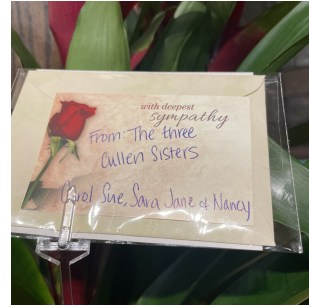 with deepest
sympathy
From: The three
Cullen Sisters
Carol Sue, Sara Jane & Nancy